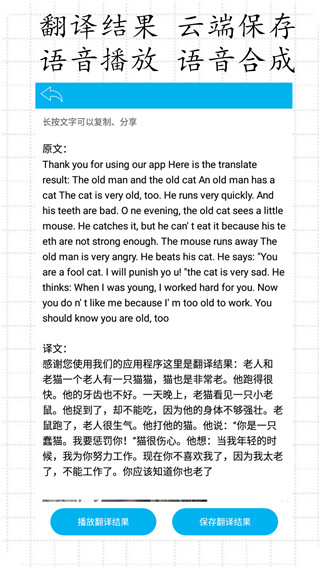 翻译结果 云端保存
语音播放 语音合成
长按文字可以复制、分享
原文：
Thank you for using our app Here is the translate
result: The old man and the old cat An old man has a
cat The cat is very old, too. He runs very quickly. And
his teeth are bad. O ne evening, the old cat sees a little
mouse. He catches it, but he can' t eat it because his te
eth are not strong enough. The mouse runs away The
old man is very angry. He beats his cat. He says: "You
are a fool cat. I will punish yo u! "the cat is very sad. He
thinks: When I was young, I worked hard for you. Now
you do n' t like me because I' m too old to work. You
should know you are old, too
译文：
感谢您使用我们的应用程序这里是翻译结果：老人和
老猫一个老人有一只猫猫，猫也是非常老。他跑得很
快。他的牙齿也不好。一天晚上，老猫看见一只小老
鼠。他捉到了，却不能吃，因为他的身体不够强壮。老
鼠跑了，老人很生气。他打他的猫。他说：“你是一只
蠢猫。我要惩罚你！”猫很伤心。他想：当我年轻的时
候，我为你努力工作。现在你不喜欢我了，因为我太老
了，不能工作了。你应该知道你也老了
播放翻译结果 保存翻译结果